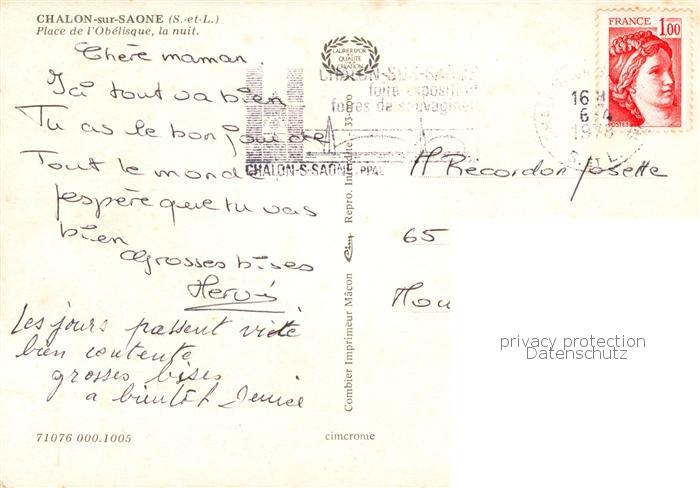 CHALON-sur-SAONE (S.-et-L.)
Place de l'Obélisque, la nuit.
Chère maman.
Ici tout va bien
Tu as le bonjour de
Tout le monde
J'espère que tu vas
bien
Grosses bises
Hervé
Les jours passent vite
bien contente
grosses bises
a bientôt Denise
71076 000.1005
cimcrome
Combier Imprimeur Mâcon Cim Repro. Interdite
LAURIER D'OR
DE LA
QUALITÉ
CRÉATION
CHALON-SUR-SAONE
foire exposition
foires de sauvagine
CHALON-S-SAONE PPAL
16 H
6-4
1978
FRANCE
1,00
POSTES
Récordon Josette
65
Mou
privacy protection
Datenschutz